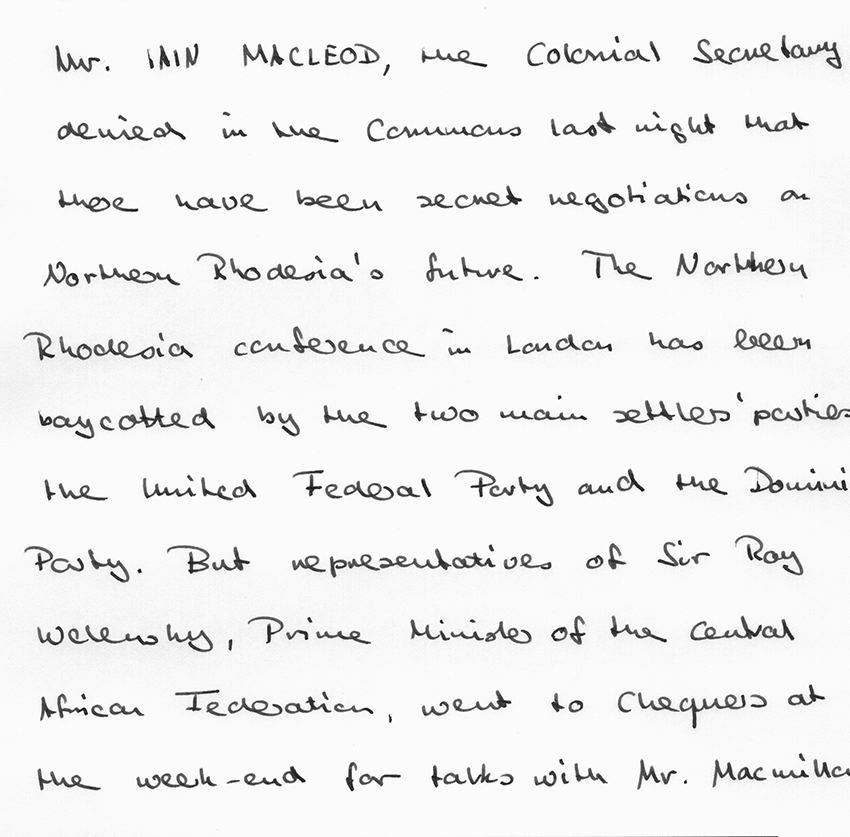 Mr. IAIN MACLEOD, the Colonial Secretary
denied in the Commons last night that
there have been secret negotiations on
Northern Rhodesia's future. The Northern
Rhodesia conference in London has been
boycotted by the two main settlers' parties
the United Federal Party and the Domini
Party. But representatives of Sir Roy
Welensky, Prime Minister of the Central
African Federation, went to Chequers at
the week-end for talks with Mr. Macmilla